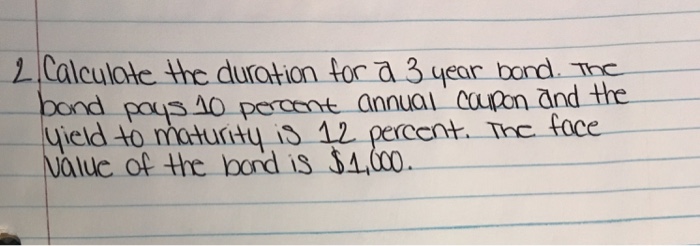 2. Calculate the duration for a 3 year bond. The
bond pays 10 percent annual coupon and the
yield to maturity is 12 percent. The face
value of the bond is $1,000.